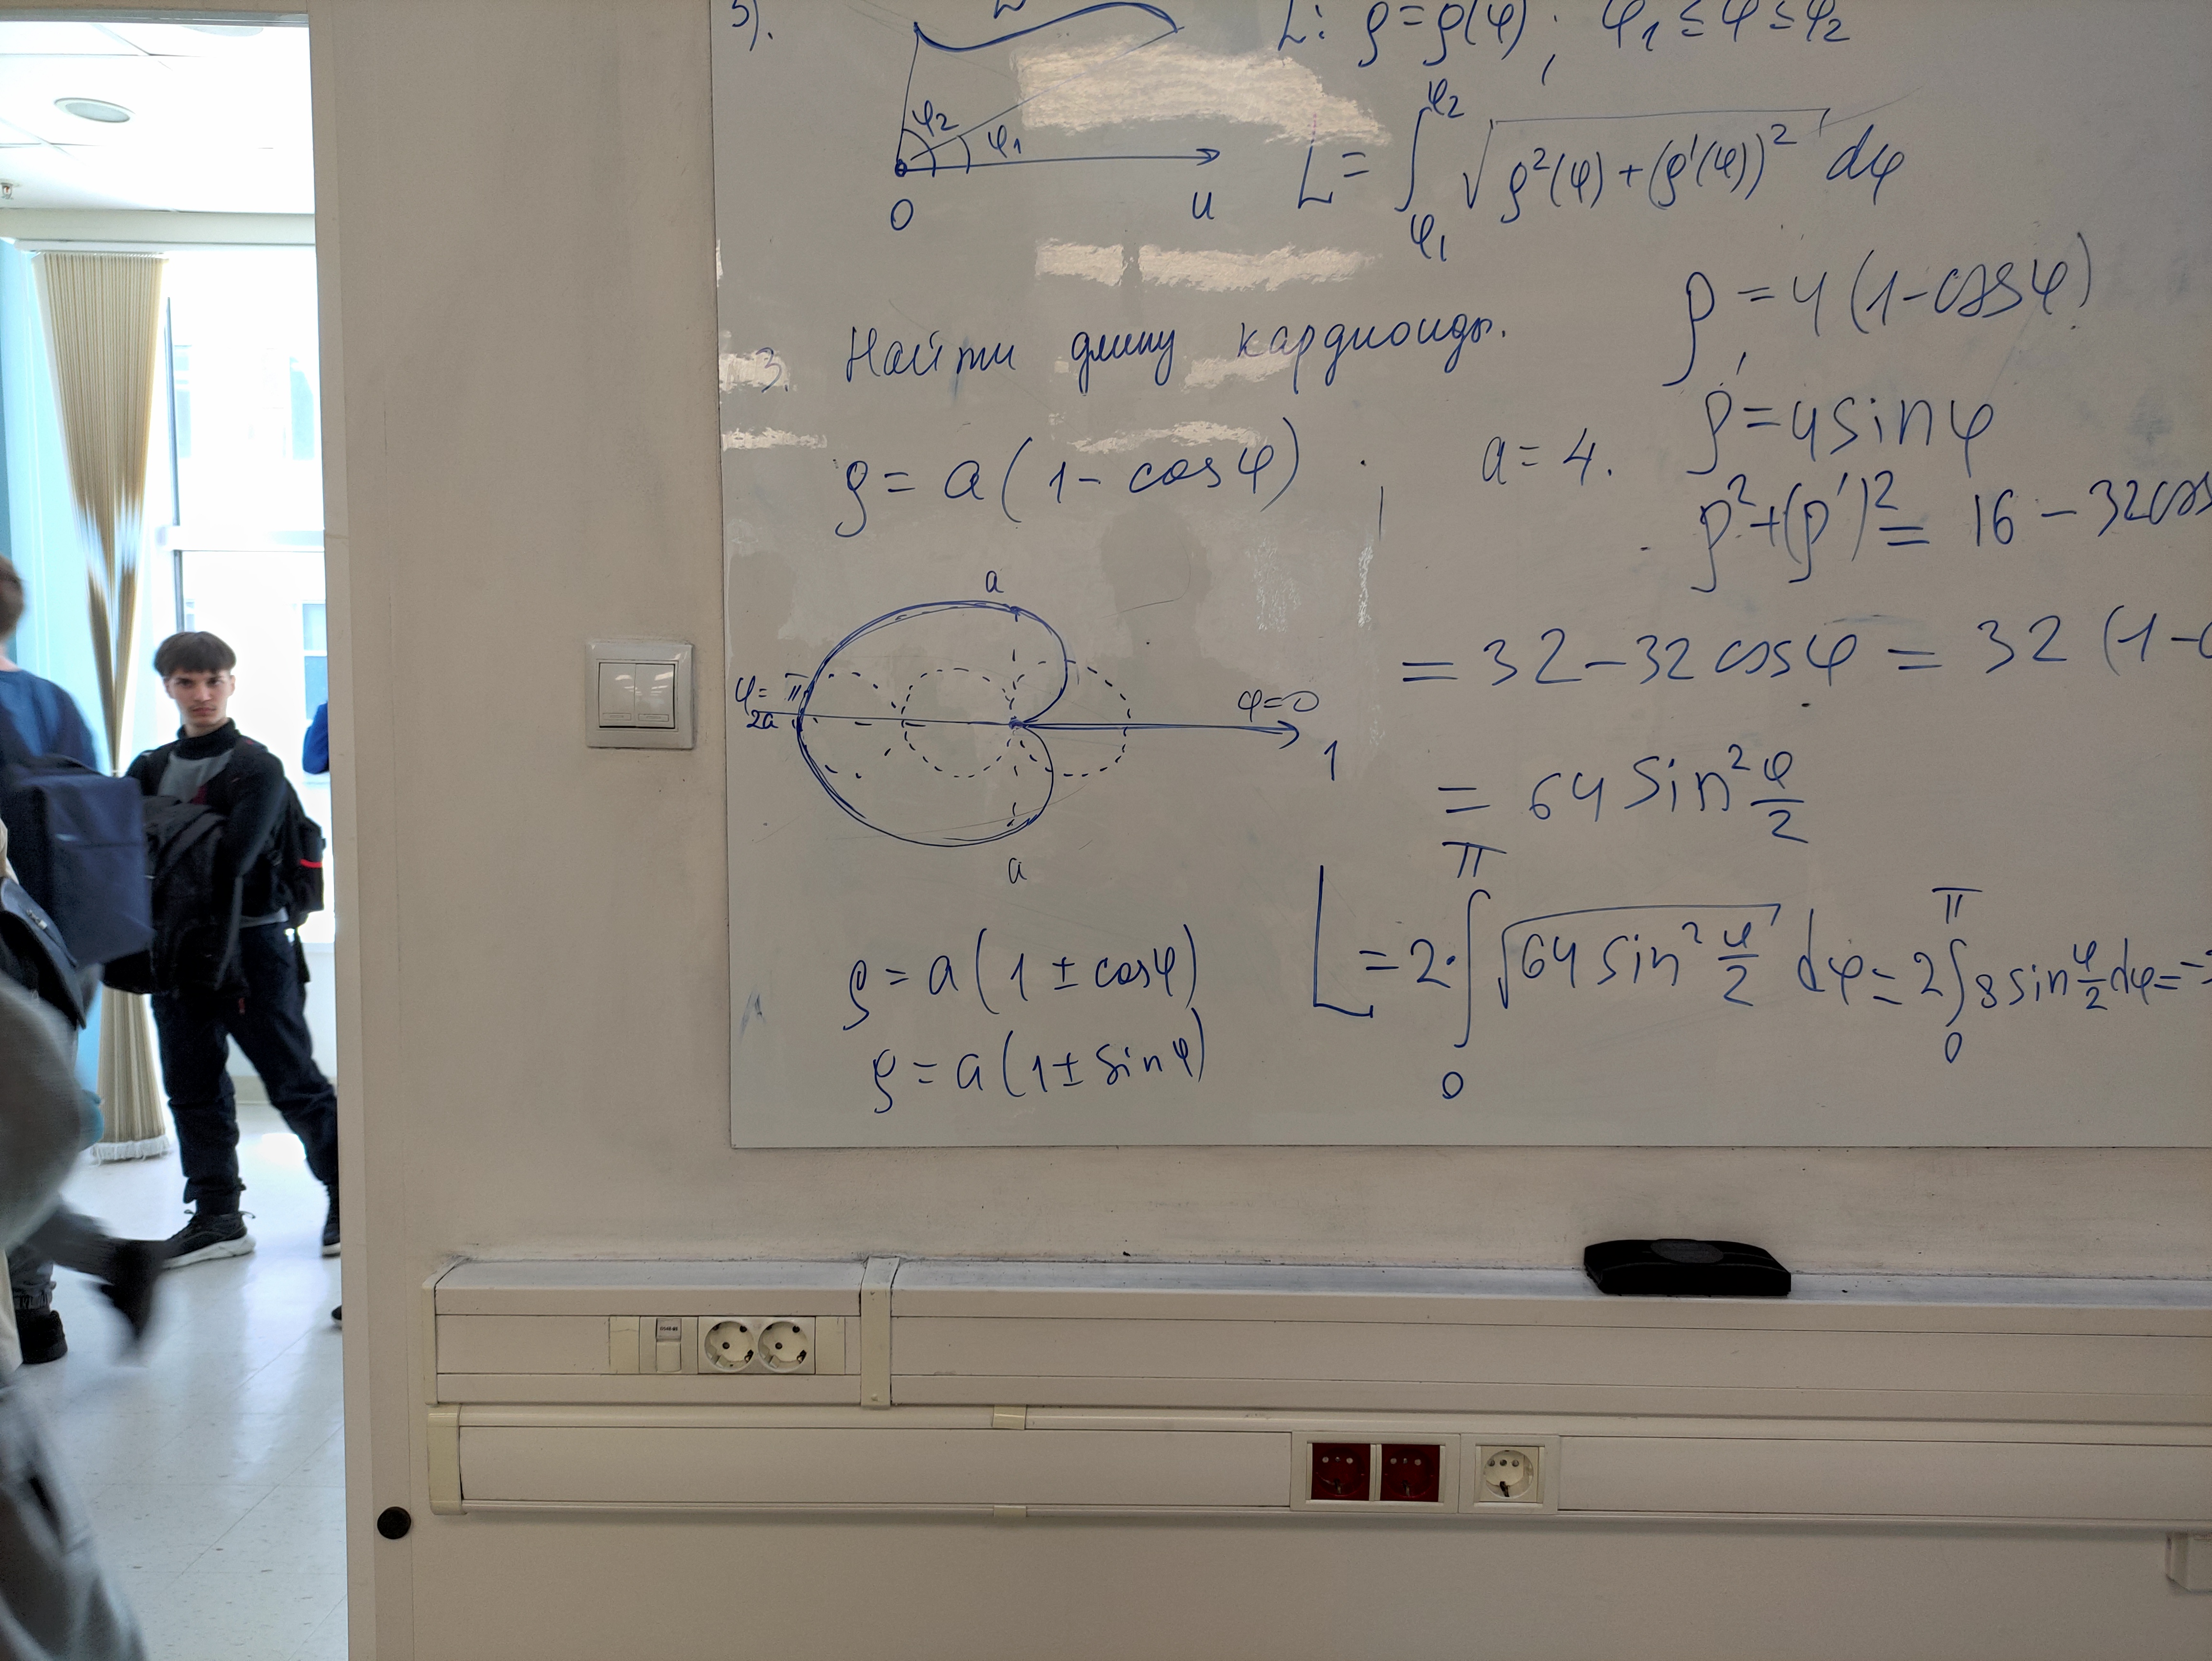 3).
L: ρ=ρ(φ); φ₁ ≤ φ ≤ φ₂
φ₂
φ₁
0
u
L = ∫_{φ₁}^{φ₂} √(ρ²(φ)+(ρ'(φ))²) dφ
3. Найти длину кардиоиды.
ρ = a(1 - cosφ)
a = 4.
ρ = 4(1-cosφ)
ρ' = 4sinφ
ρ²+(ρ')² = 16 - 32cos
= 32 - 32cosφ = 32(1-
= 64 sin² φ/2
a
φ=π
2a
φ=0
1
a
L = 2·∫_0^π √(64 sin² φ/2) dφ = 2∫_0^π 8 sin φ/2 dφ = -
ρ = a(1 ± cosφ)
ρ = a(1 ± sinφ)